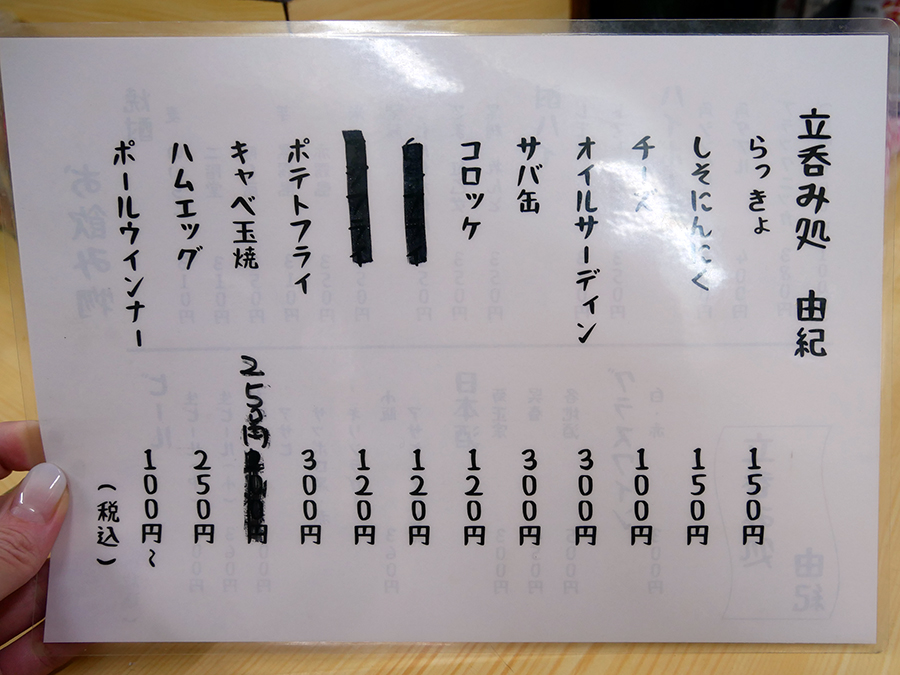 立呑み処 由紀
らっきょ 150円
しそにんにく 150円
チーズ 100円
オイルサーディン 300円
サバ缶 300円
コロッケ 120円
120円
120円
ポテトフライ 300円
キャベ玉焼 250円
ハムエッグ 250円
ポールウインナー 100円～
(税込)